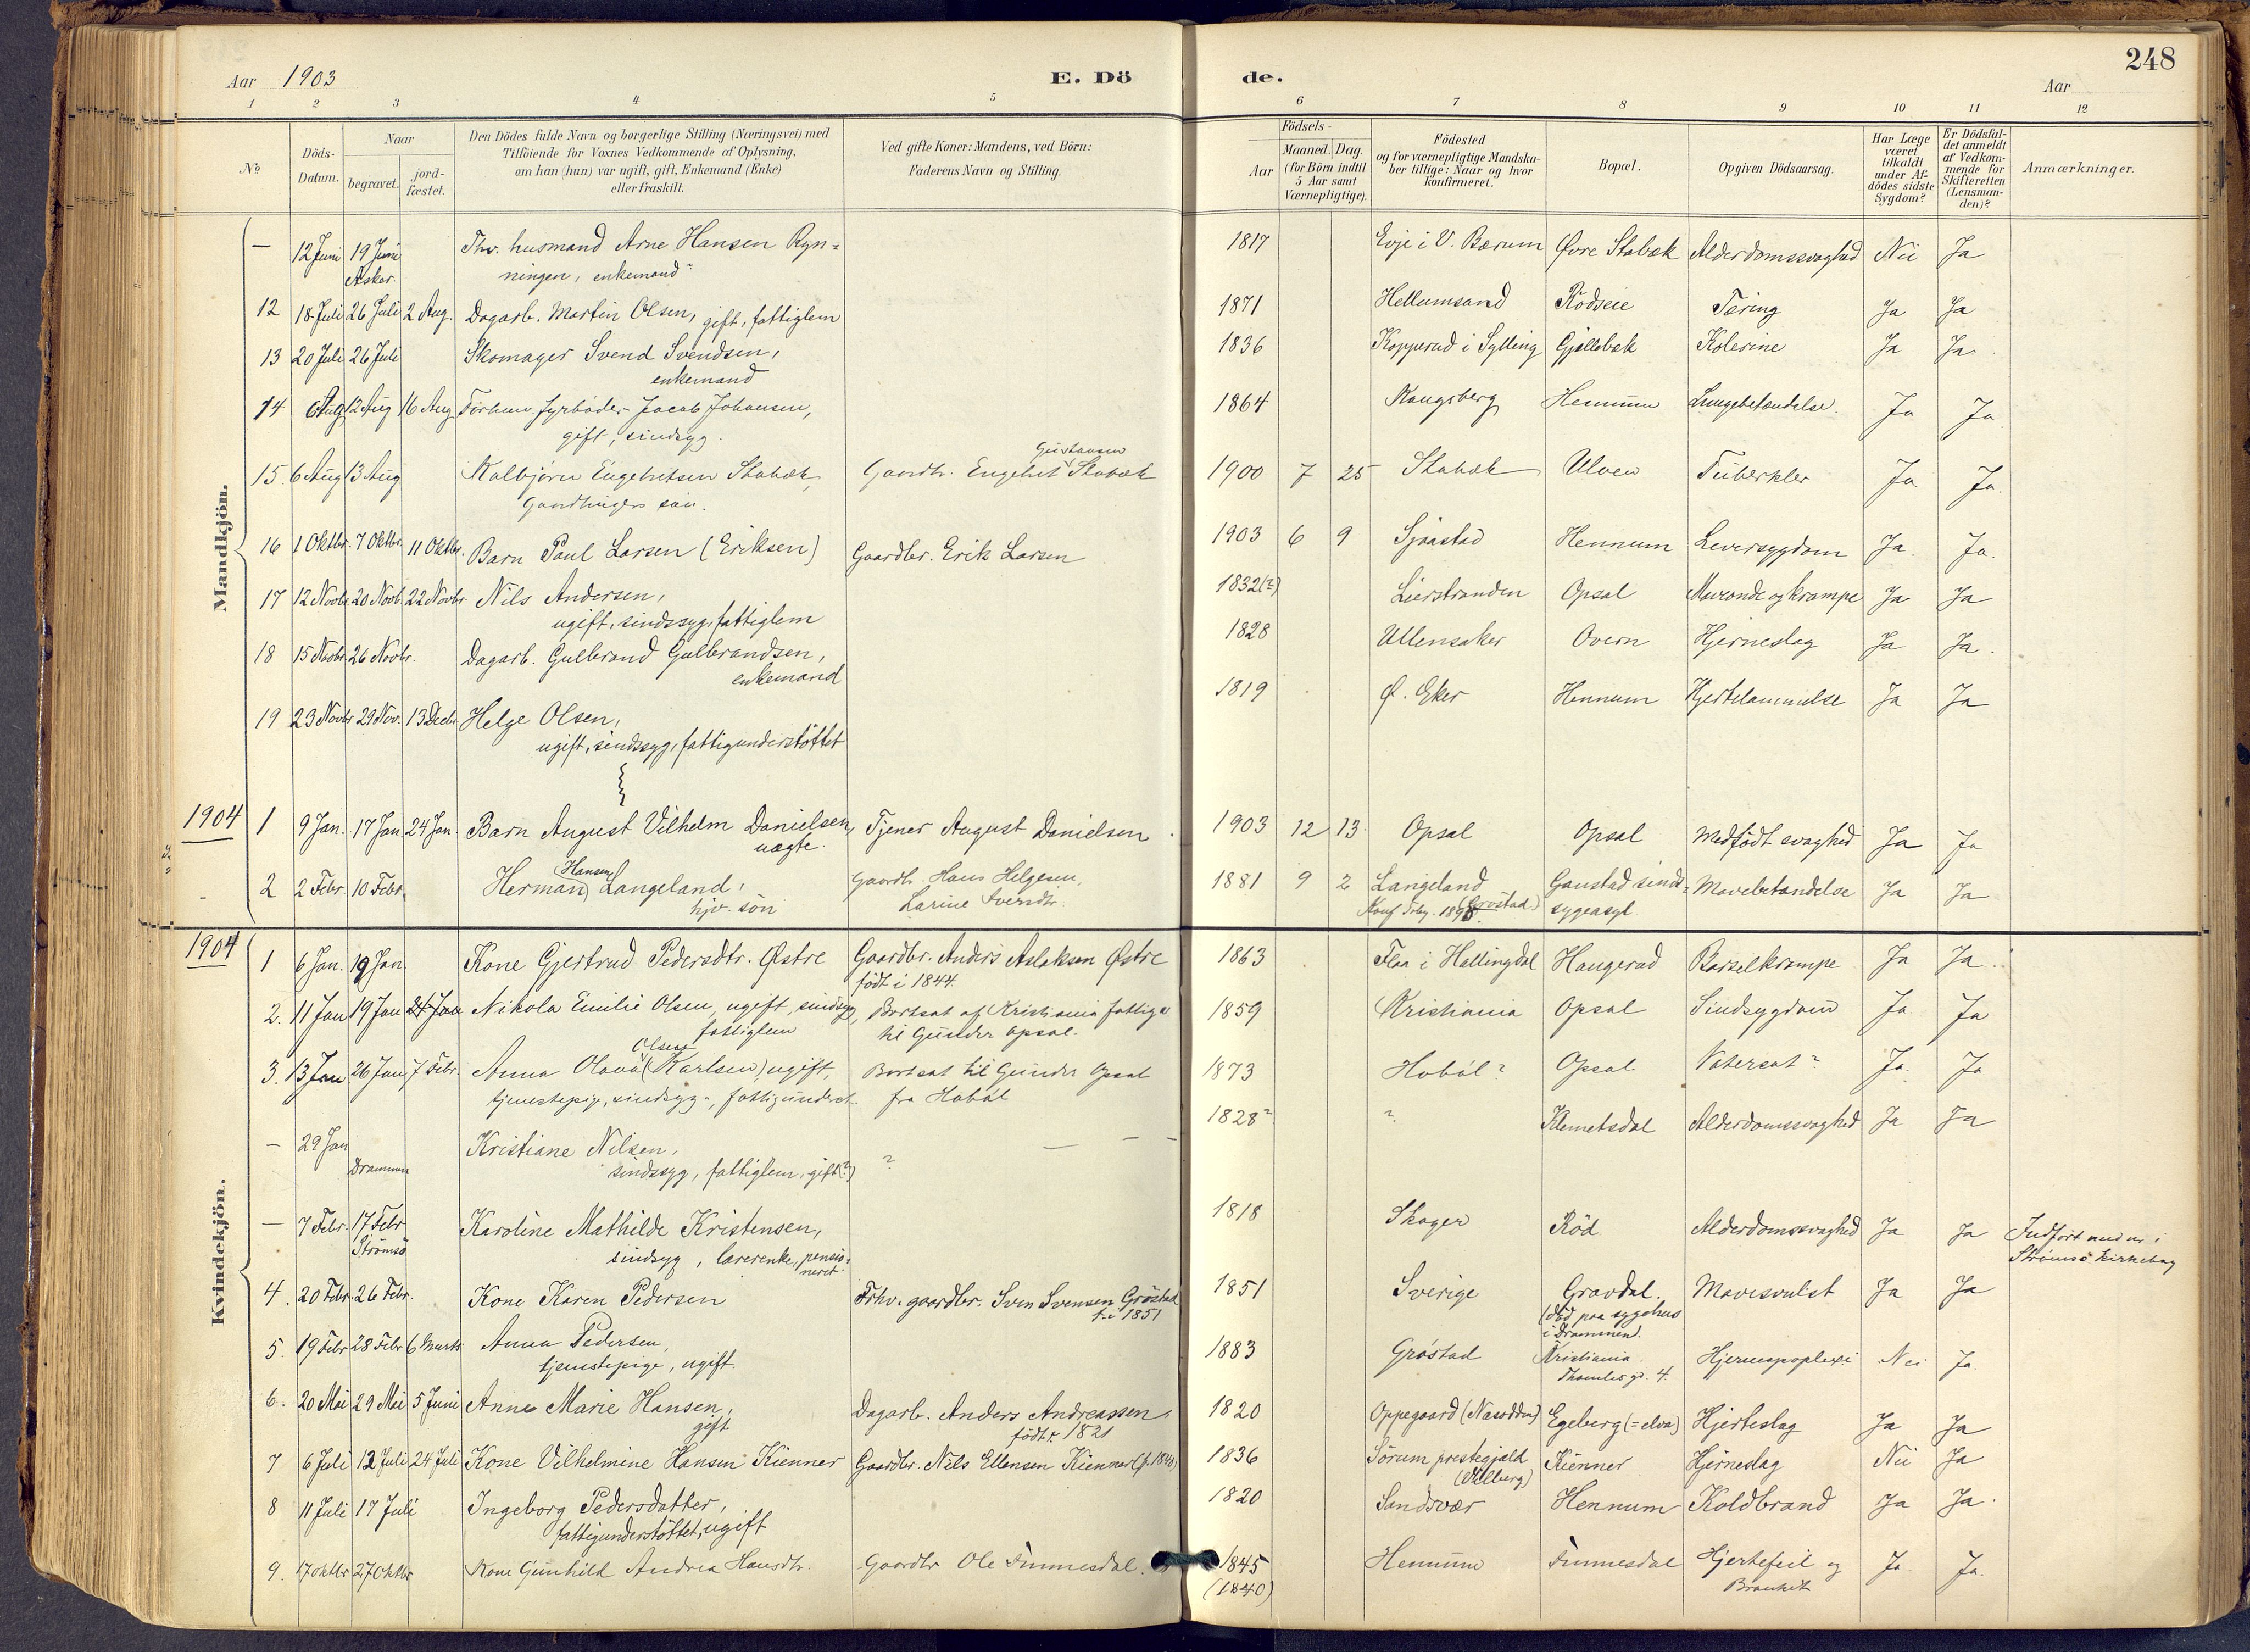 248
Aar 1903
E. Dö
de.
Aar
1 2 3 4 5 6 7 8 9 10 11 12
No
Döds-Datum.
Naar
begravet.
jord-fæstet.
Den Dödes fulde Navn og borgerlige Stilling (Næringsvei) med
Tilföiende for Voxnes Vedkommende af Oplysning,
om han (hun) var ugift, gift, Enkemand (Enke)
eller fraskilt.
Ved gifte Koner: Mandens, ved Börn:
Faderens Navn og Stilling.
Födsels-
Aar
Maaned. Dag.
(for Börn indtil
5 Aar samt
Værnepligtige).
Födested
og for værnepligtige Mandska-
ber tillige: Naar og hvor
konfirmeret.
Bopæl.
Opgiven Dödsaarsag.
Har Læge
været
tilkaldt
under Af-
dödes sidste
Sygdom?
Er Dödsfal-
det anmeldt
af Vedkom-
mende for
Skifteretten
(Lensman-
den)?
Anmærkninger.
Mandkjön.
— 12 Juni 19 Juni Fhv. husmand Arne Hansen Ryn= 1817 Evje i V. Bærum Øvre Stabæk Alderdomssvaghed Nei Ja
Asker. ningen, enkemand
12 18 Juli 26 Juli 2 Aug. Dagarb. Martin Olsen, gift, fattiglem 1871 Hellumsand Rödseie Tæring Ja Ja
13 20 Juli 26 Juli Skomager Svend Svendsen, 1836 Kopperud i Sylling Gjellebæk Kolerine Ja Ja
enkemand
14 6 Aug 12 Aug 16 Aug Forhenv. fyrböder Jacob Johansen, 1864 Kongsberg Hennum Lungebetændelse. Ja Ja
gift, sindsyg.
15. 6 Aug 13 Aug Kolbjörn Engebretsen Stabæk, Gaardbr. Engebret Gustavsen Stabæk 1900 7 25 Stabæk Ulven Tuberkler Ja Ja.
Gaardbrugers sön.
16 1 Oktbr. 7 Oktbr. 11 Oktbr. Barn Paul Larsen (Eriksen) Gaardbr. Erik Larsen 1903 6 9 Sjaastad Hennum Leversygdom Ja. Ja.
17 12 Novbr. 20 Novb. 22 Novbr. Nils Andersen, 1832(?) Lierstranden Opsal Maveonde og krampe Ja Ja
ugift, sindssyg, fattiglem
18 15 Novbr. 26 Novbr. Dagarb. Gulbrand Gulbrandsen, 1828 Ullensaker Overn Hjerneslag Ja Ja.
enkemand
19 23 Novbr 29 Nov. 13 Decbr. Helge Olsen, 1819 Ø. Eker Hennum Hjertelammelse Ja Ja
ugift, sindssyg, fattigunderstöttet
1904 1 9 Jan. 17 Jan. 24 Jan. Barn August Vilhelm Danielsen, Tjener August Danielsen 1903 12 13 Opsal Opsal Medfödt svaghed Ja Ja
uægte.
2 2 Febr. 10 Febr. Herman Hansen Langeland, Gaardb. Hans Helgesen, 1881 9 2 Langeland Gaustad sinds= Mavebetændelse Ja Ja
hjv. sön Karine Sverdtr. (Grøstad) sygeasyl
Kvindekjön.
1904 1 6 Jan. 19 Jan. Kone Gjertrud Pedersdtr. Østre Gaardbr. Anders Aslaksen Østre 1863 Flaa i Hallingdal Haugerud Barselkrampe Ja Ja.
födt i 1844.
2. 11 Jan 19 Jan 24 Jan Nikola Emilie Olsen, ugift, sindsyg, Bortsat af Kristiania fattig= 1859 Kristiania Opsal Sindsygdom Ja Ja
fattiglem til Gunder Opsal.
3. 13 Jan 26 Jan 7 Febr. Anna Olava Olsen (Karlsen) ugift, Bortsat til Gunder Opsal 1873 Hobøl? Opsal. Vatersot? Ja. Ja
tjenestepige, sindsyg, fattigunderst. fra Hobøl
— 29 Jan Kristiane Nilsen, 1828? ? Klemetsdal Alderdomssvaghed Ja Ja
Drammen sindssyg, fattiglem, gift(?) ?
— 7 Febr. 17 Febr Karoline Mathilde Kristensen, 1818 Skoger Röd Alderdomssvaghed Ja Ja Indført under i
Strømsö sindsyg, lærerenke, pensio=neret. Strømsö kirkebog
4. 20 Febr. 26 Febr. Kone Karen Pedersen Fhv. gaardbr. Sven Svensen Gröstad 1851 Sverige Gravdal. Mavesvulst Ja Ja
f. i 1851 (död paa sygehus
i Drammen).
5. 19 Febr 28 Febr 6 Marts Anna Pedersen, 1883 Gröstad Kristiania Hjerneapoplexi Nei Ja.
tjenestepige, ugift. Thomles gd. 4.
6. 20 Mai 29 Mai 5 Juni Anne Marie Hansen, Dagarb. Anders Andreassen 1820 Oppegaard (Næsodden) Egeberg (=elva) Hjerteslag Ja Ja
gift födt 1821
7 6 Juli 12 Juli 24 Juli Kone Vilhelmine Hansen Kienner Gaardbr. Nils Ellensen Kienner 1836 Sörum prestegjæld Kienner Hjerneslag Nei Ja
8 11 Juli 17 Juli Ingeborg Pedersdatter, 1820 Sandsvær Hennum Koldbrand Ja Ja.
fattigunderstöttet, ugift
9. 17 Oktbr 27 Oktbr Kone Gunhild Andrea Hansdtr. Gaardbr Ole Tunnesdal. 1845 Hennum Tunnesdal Hjertefeil og Ja. Ja.
(1840) Bronkit